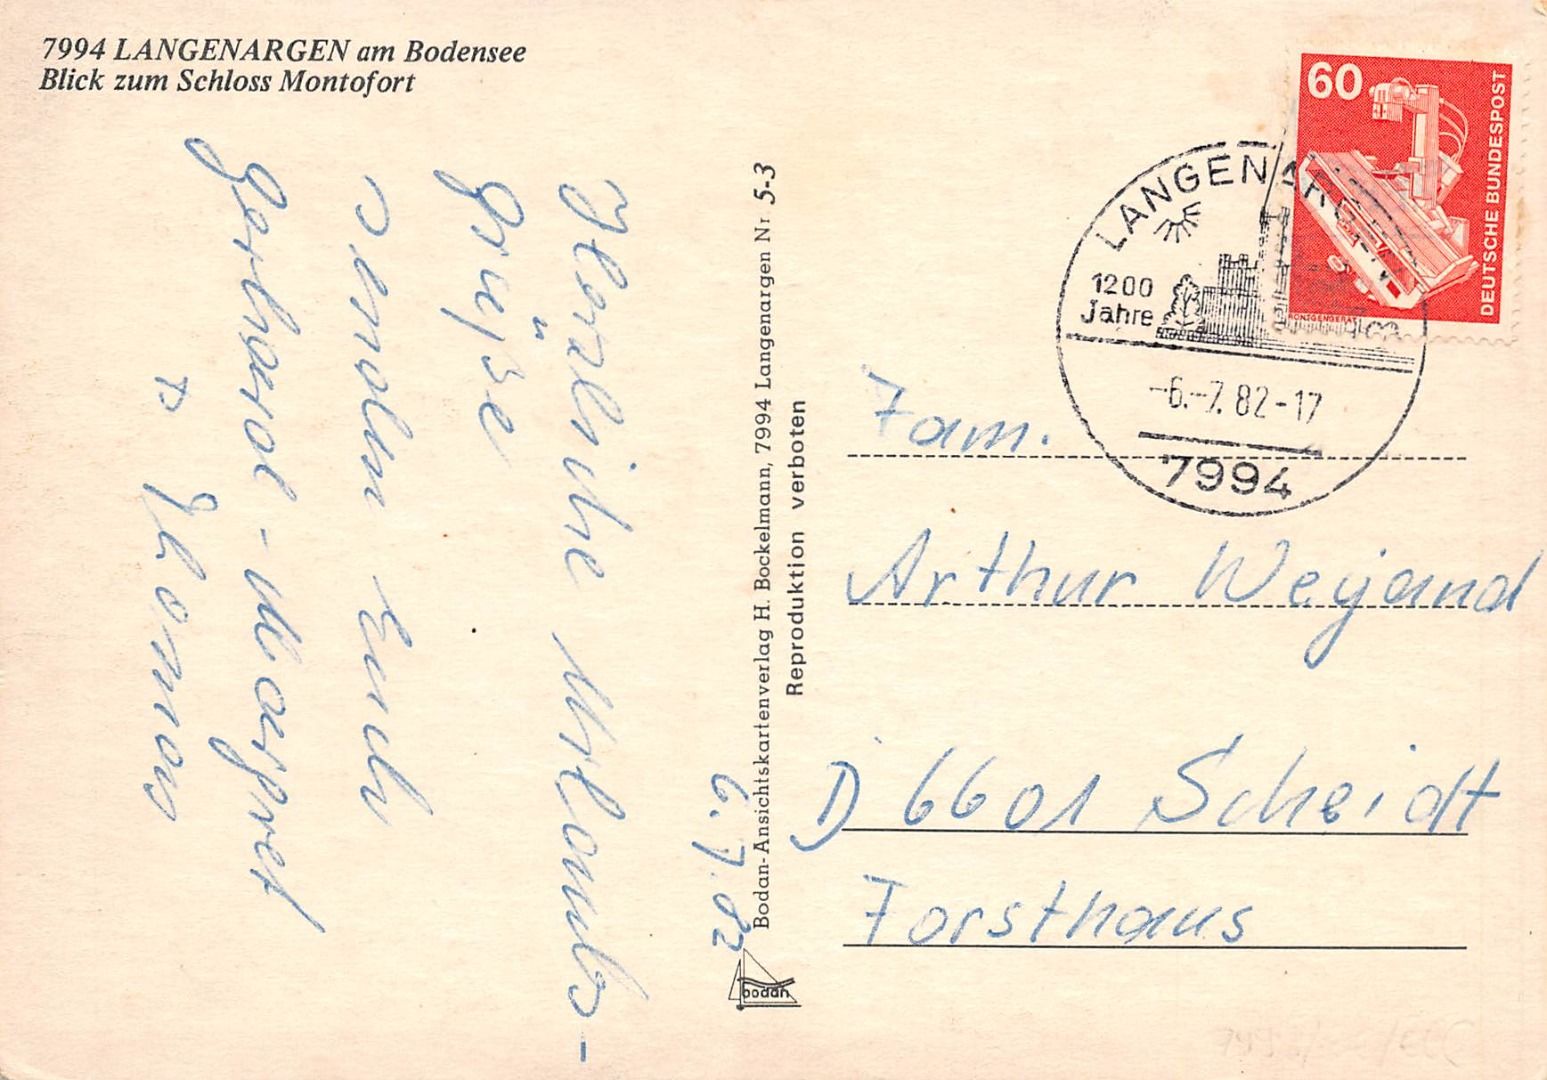 7994 LANGENARGEN am Bodensee
Blick zum Schloss Montofort
6.7.82
Herzliche Urlaubs-
grüße
senden Euch
Gerhard - Margret
u Thomas
Bodan-Ansichtskartenverlag H. Bockelmann, 7994 Langenargen Nr 5-3
Reproduktion verboten
bodan
60
DEUTSCHE BUNDESPOST
RÖNTGENGERÄT
LANGENARGEN
1200
Jahre
-6.-7.82-17
7994
Fam.
Arthur Weyand
D 6601 Scheidt
Forsthaus